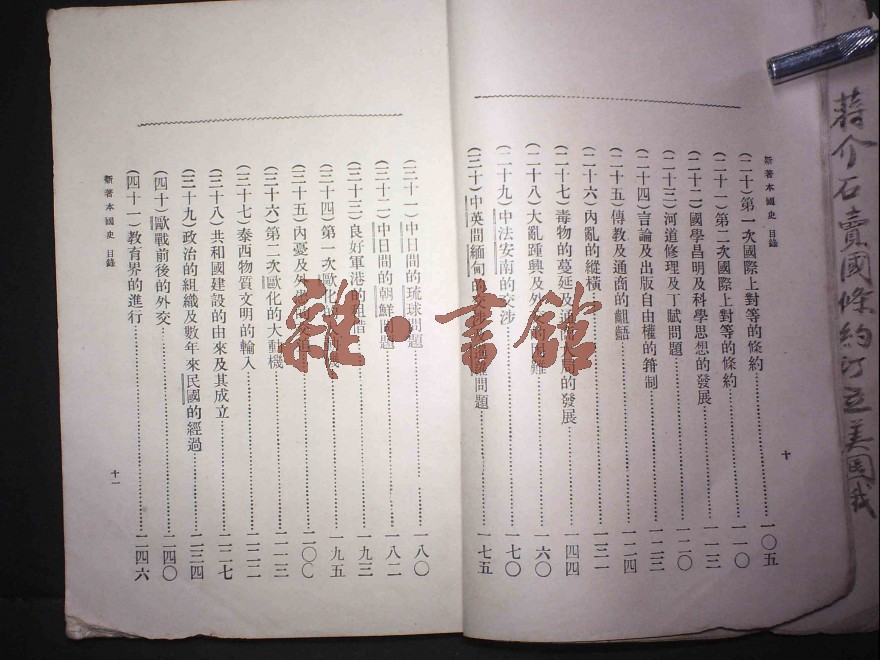 蔣介石賣國條約訂立美国
新著本國史 目錄
(二十) 第一次國際上對等的條約 一〇五
(二十一) 第二次國際上對等的條約 一一〇
(二十二) 國學昌明及科學思想的發展 一一三
(二十三) 河道修理及丁賦問題 一二〇
(二十四) 言論及出版自由權的箝制 一二三
(二十五) 傳教及通商的齟齬 一二四
(二十六) 內亂的縱橫 一三一
(二十七) 毒物的蔓延及通商 的發展 一四四
(二十八) 大亂踵興及外 一六〇
(二十九) 中法安南的交涉 一七〇
(三十) 中英間緬甸的交涉 問題 一七五
十
(三十一) 中日間的琉球問題 一八〇
(三十二) 中日間的朝鮮問題 一八二
(三十三) 良好軍港的租借 一九三
(三十四) 第一次歐化 一九五
(三十五) 內憂及外 二〇〇
(三十六) 第二次歐化的大動機 二一三
(三十七) 泰西物質文明的輸入 二二二
(三十八) 共和國建設的由來及其成立 二二七
(三十九) 政治的組織及數年來民國的經過 二三四
(四十) 歐戰前後的外交 二四〇
(四十一) 教育界的進行 二四六
新著本國史 目錄
十一
雜·書館